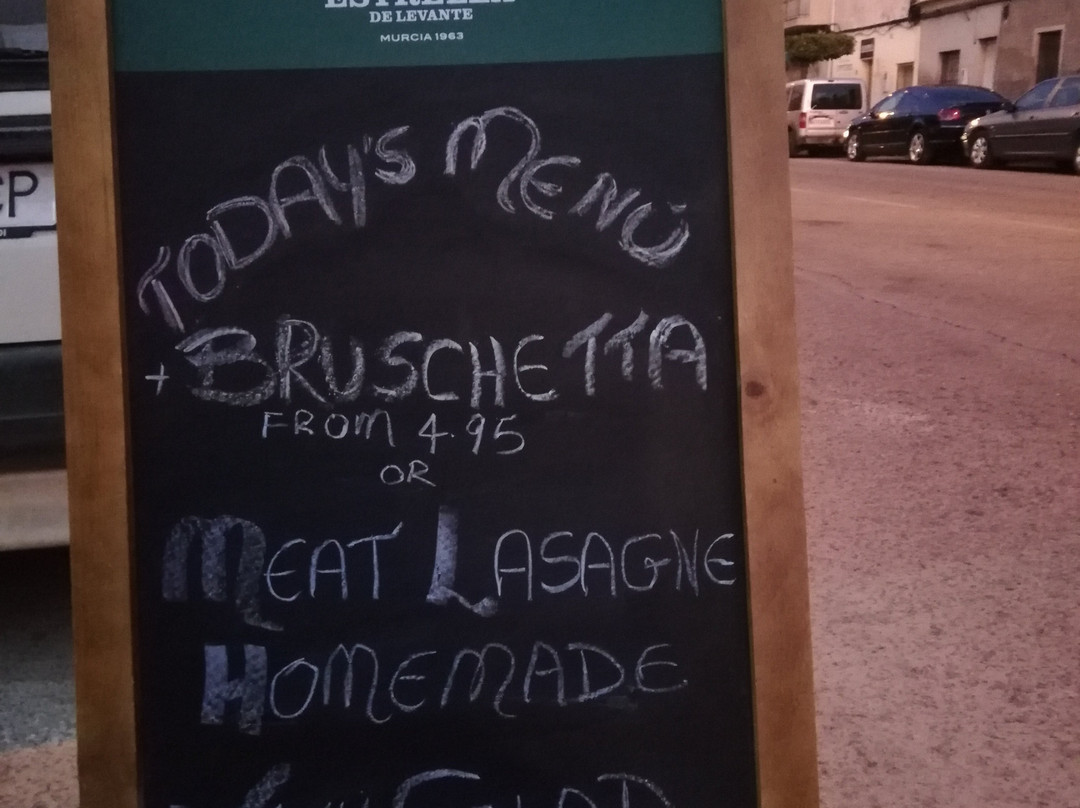 DE LEVANTE
MURCIA 1963
TODAY'S MENÚ
+ BRUSCHETTA
FROM 4.95
OR
MEAT LASAGNE
HOMEMADE
CP